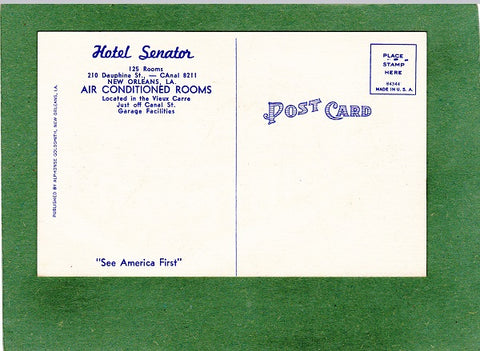 Hotel Senator
125 Rooms
210 Dauphine St., — CAnal 8211
NEW ORLEANS, LA.
AIR CONDITIONED ROOMS
Located in the Vieux Carre
Just off Canal St.
Garage Facilities
PUBLISHED BY ALPHONSE GOLDSMITH, NEW ORLEANS, LA.
"See America First"
POST CARD
PLACE
STAMP
HERE
64344
MADE IN U. S. A.